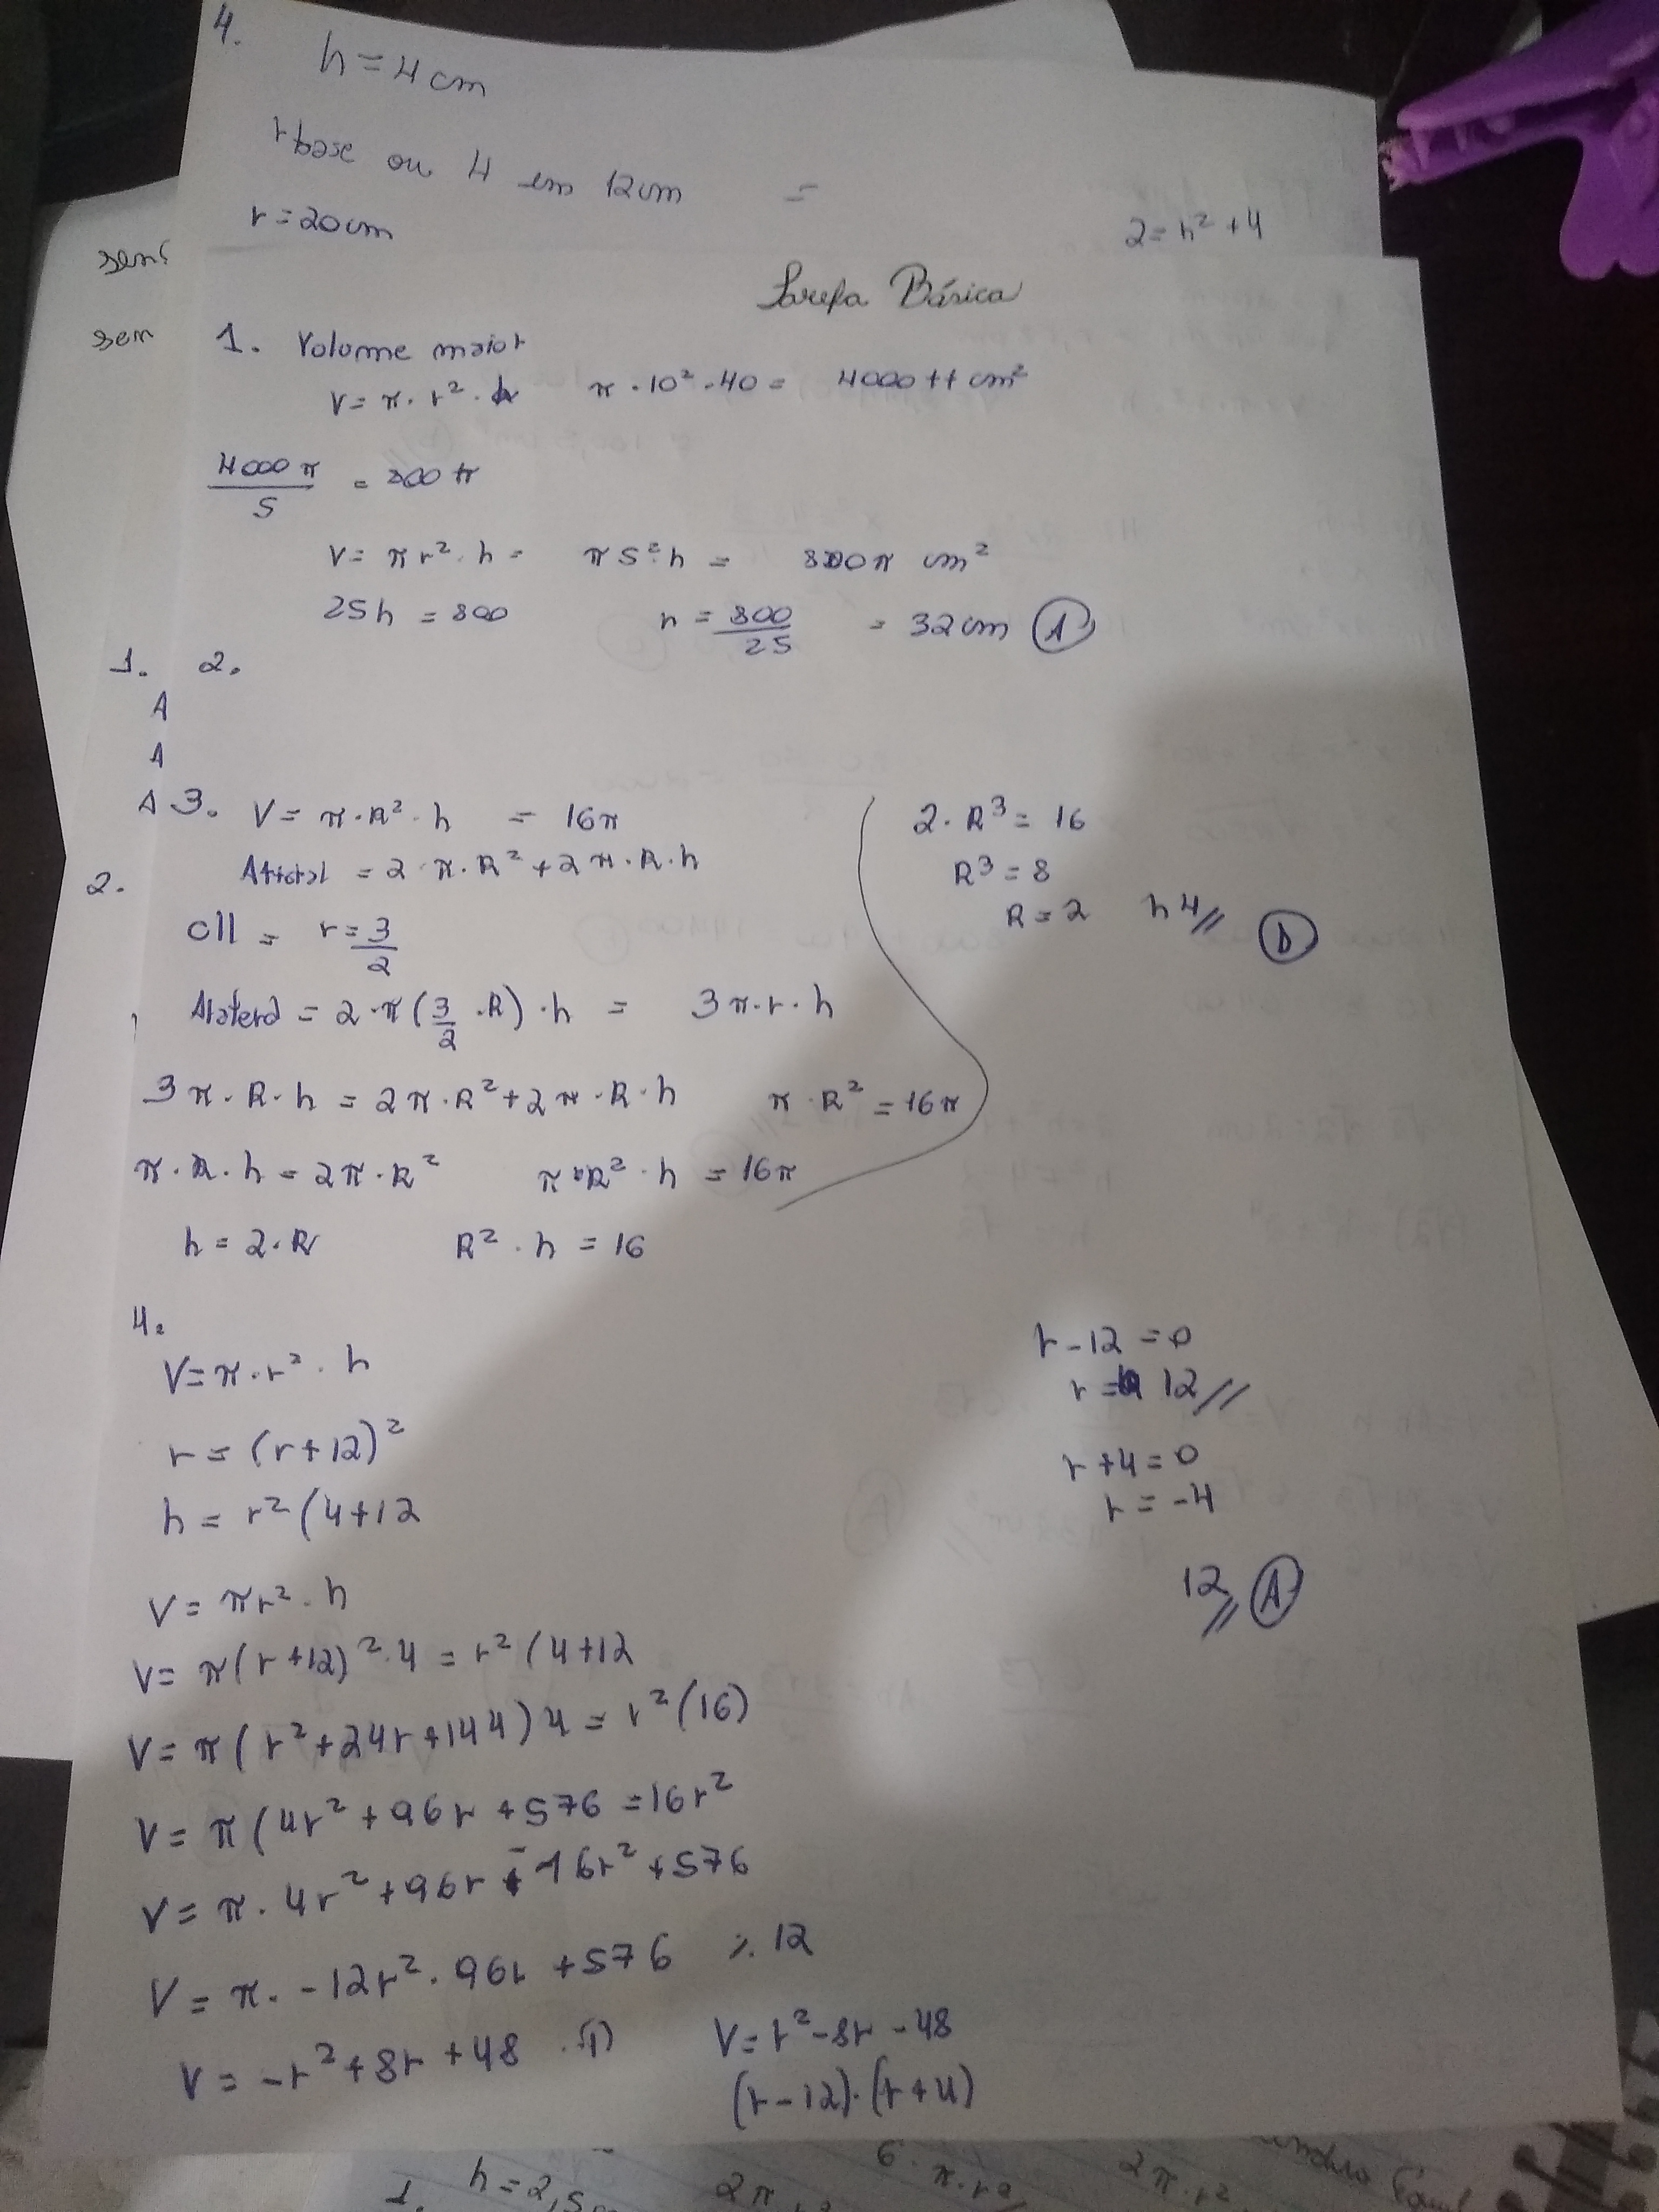 4.
h = 4 cm
r base ou 4 em 12cm =
r = 20cm
2 = h² + 4
sen
sen
Tarefa Básica
1. Volume maior
V = π · r² · h π · 10² · 40 = 4000 π cm²
4000 π / 5 = 800 π
V = π r² · h = π 5² · h = 800 π cm²
25h = 800 h = 800 / 25 = 32 cm A
1. 2.
A
A
A 3. V = π · R² · h = 16π
Atotal = 2 · π · R² + 2 π · R · h
2.
Cil = r = 3 / 2
Alateral = 2 · π (3/2 · R) · h = 3 π · r · h
3 π · R · h = 2 π · R² + 2 π · R · h π · R² = 16 π
π · R · h = 2 π · R² π · R² · h = 16 π
h = 2 · R R² · h = 16
2 · R³ = 16
R³ = 8
R = 2 h 4 // D
4.
V = π · r² · h
r = (r + 12)²
h = r² (4 + 12
V = π r² · h
V = π (r + 12)² · 4 = r² (4 + 12
V = π ( r² + 24r + 144) 4 = r² (16)
V = π (4r² + 96r + 576 = 16r²
V = π · 4r² + 96r - 16r² + 576
V = π · - 12r² · 96r + 576 ÷ 12
V = -r² + 8r + 48 V = r² - 8r - 48
(r - 12) · (r + 4)
r - 12 = 0
r = 12 //
r + 4 = 0
r = -4
12 // A
1. h = 2,5 2π 6 · π · r² 2 π · r²